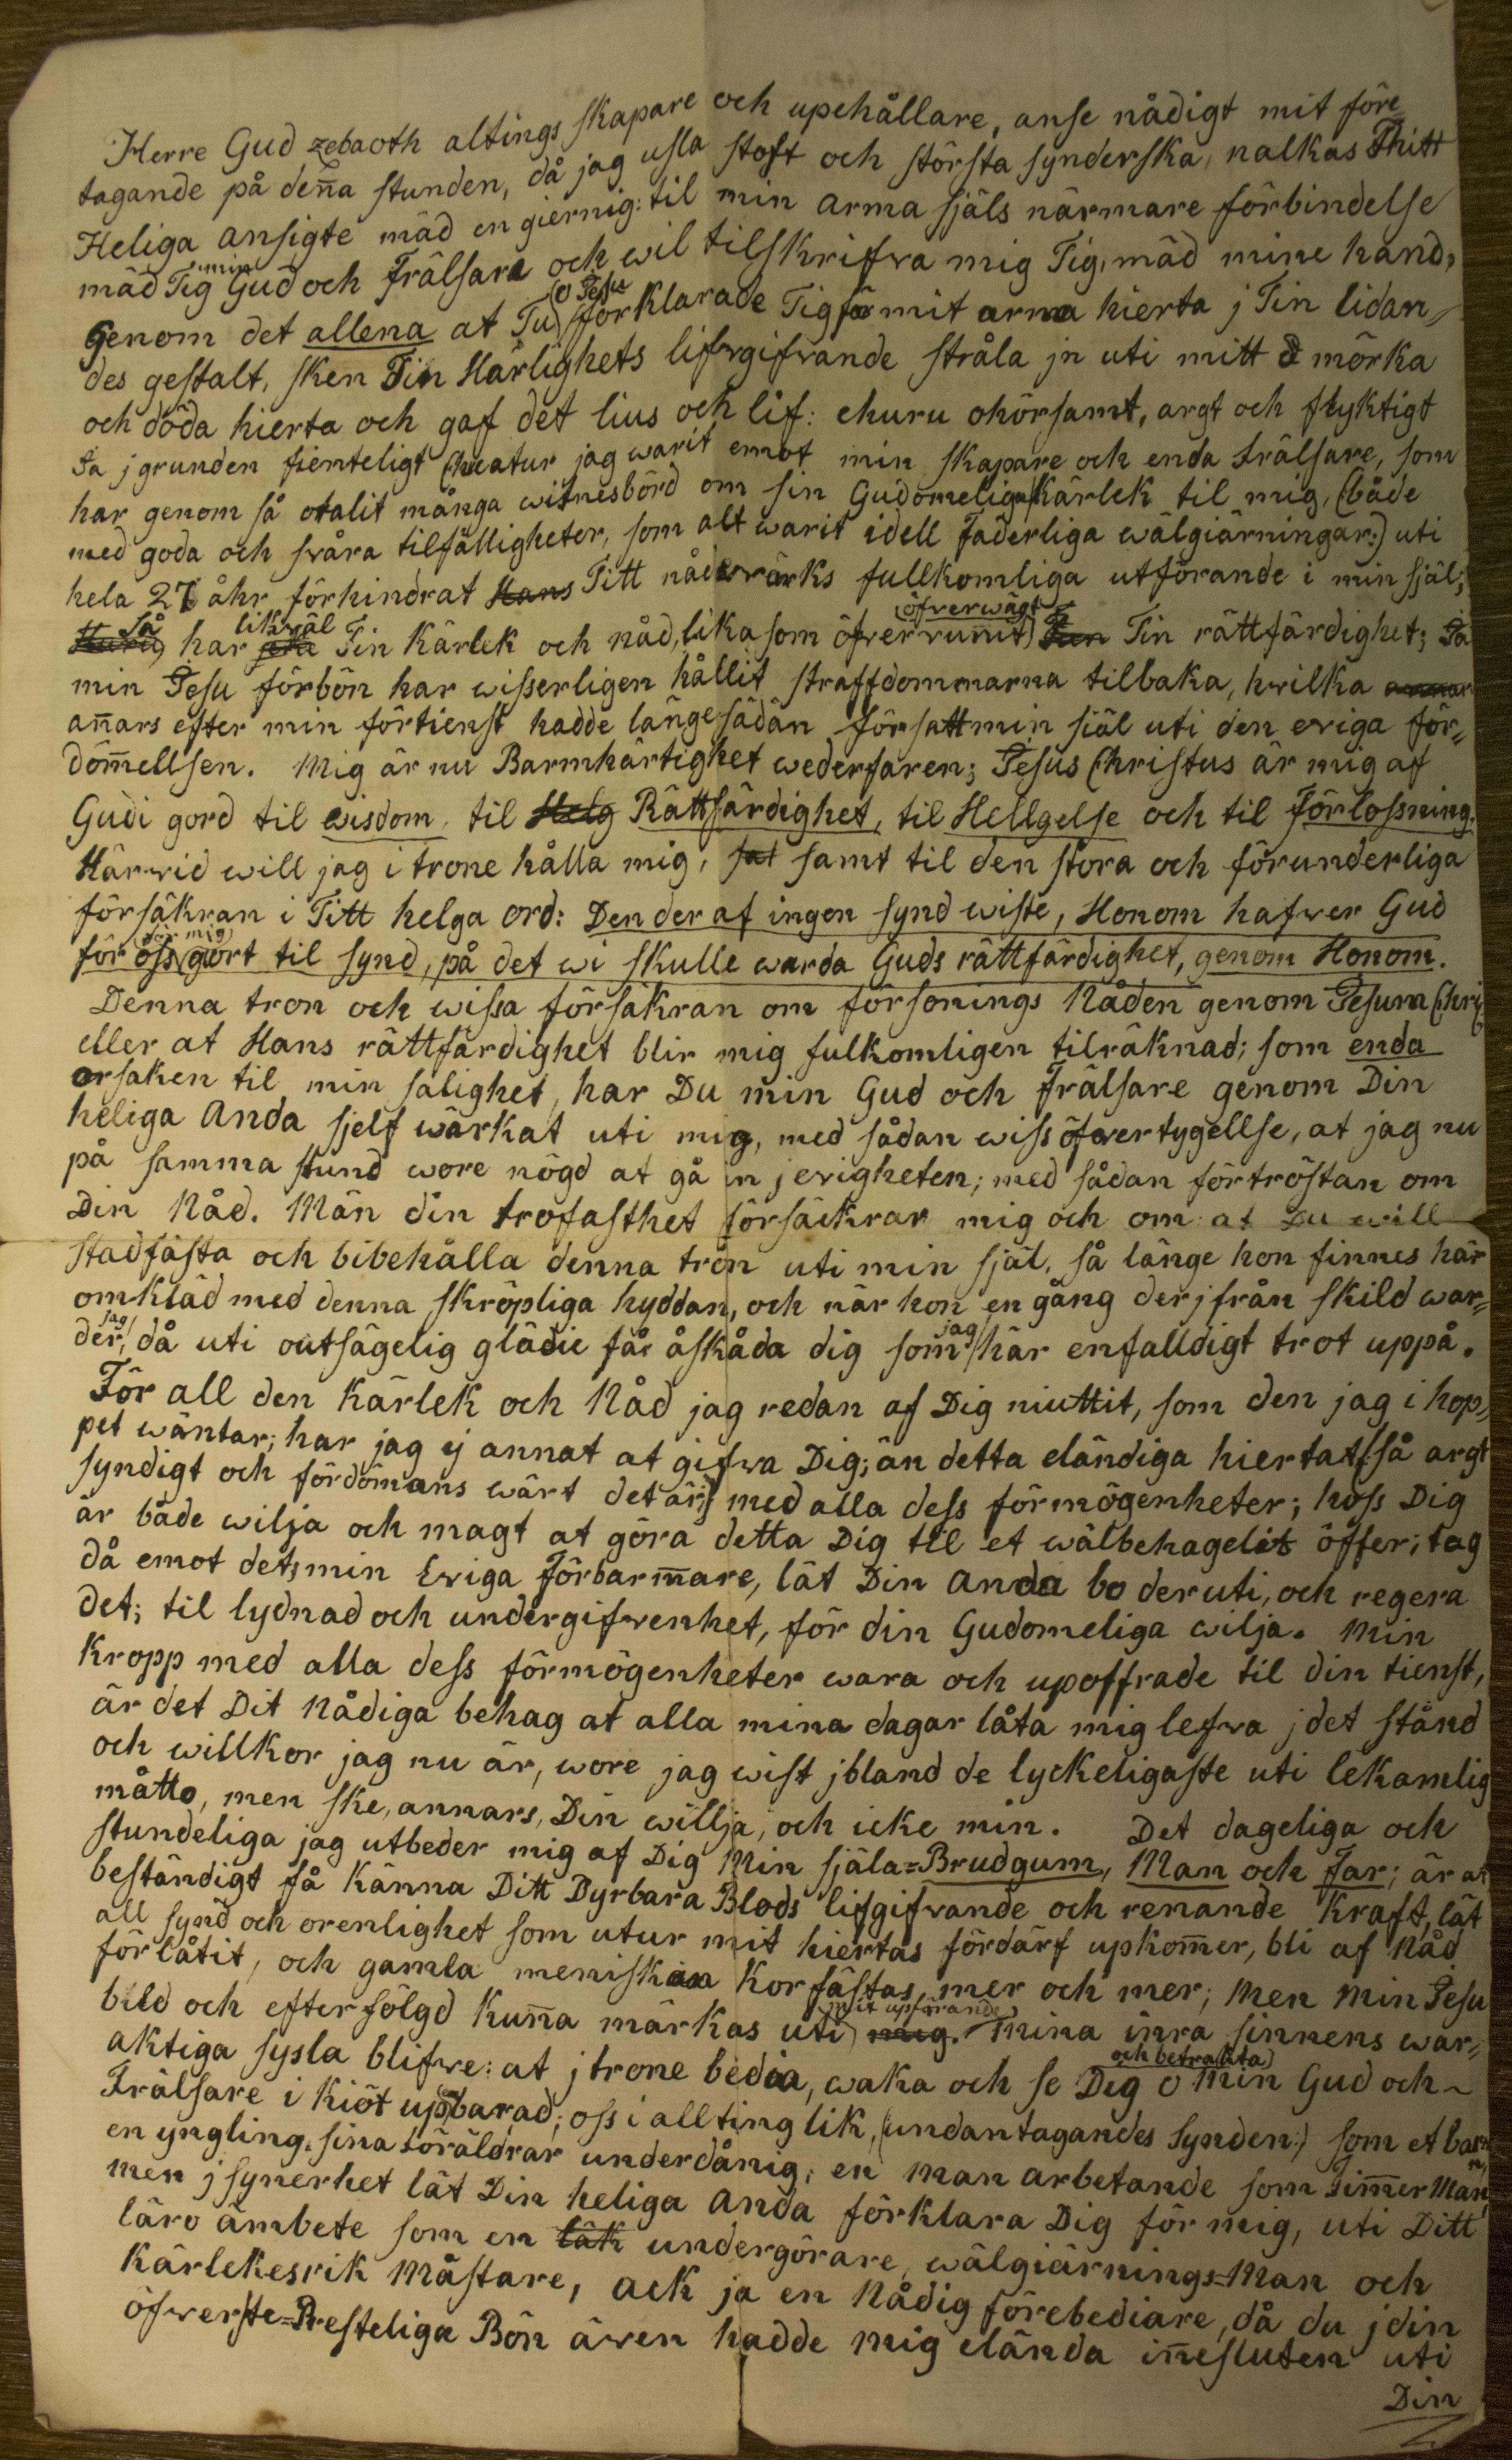 Herre Gud zebaoth altings skapare och upehållare, anse nådigt mit före
tagande på denna stunden, då jag usla stoft och största synderska, nalkas Thitt
Heliga ansigte mäd en giernig: til min arma själs närmare förbindelse
mäd Tig min Gud och Frälsare och wil tilskrifva mig Tig, mäd mine hand,
Genom det allena at Tu (o Jesu) förklarade Tig för mit arma hierta j Tin lidan,,
des gestalt, sken Tin Härlighets lifvgifvande stråla jn uti mitt d mörka
och döda hierta och gaf det lius och lif: ehuru ohörsamt, argt och flyktigt
Ja j grunden fienteligt Creatur jag warit emot min skapare och enda Frälsare, som
har genom så otalit många witnesbörd om sin Gudomeliga Kärlek til mig, (både
med goda och svåra tilfälligheter, som alt warit idell Faderliga wälgiärningar:) uti
hela 27 åhr förhindrat Hans Titt nådewärks fullkomliga utförande i min själ;
Huru Så har jcke likwäl Tin Kärlek och nåd, lika som öfvervunnit (öfverwägt) Tin rättfärdighet; Ja
min Jesu förbön har wisserligen hållit straffdommarna tilbaka, hvilka annar
annars efter min förtienst hadde länge sädän försatt min siäl uti den eviga för,,
dömmellsen. Mig är nu Barmhärtighet wederfaren; Jesus Christus är mig af
Gudi gord til wisdom til Helg Rättfärdighet, til Hellgelse och til förlossning.
Härvid will jag i trone hålla mig, sat samt til den stora och förunderliga
försäkran i Titt helga ord: Den der af ingen synd wiste, Honom hafver Gud
för oss (för mig) giort til synd, på det wi skulle warda Guds rättfärdighet, genom Honom.
Denna tron och wissa försäkran om försonings Nåden genom Jesum Chri:
eller at Hans rättfärdighet blir mig fulkomligen tilräknad; som enda
orsaken til min salighet, har Du min Gud och Frälsare genom Din
heliga Anda sjelf wärkat uti mig, med sådan wiss öfvertygellse, at jag nu
på samma stund wore nögd at gå in j evigheten; med sådan förtröstan om
Din Nåd. Män din trofasthet försäkrar mig och om: at Du will
stadfästa och bibehålla denna tron uti min själ, så länge hon finnes här
omkläd med denna skröpliga hyddan, och när hon en gång der jfrån skild war,,
der, jag då uti outsägelig glädie får åskåda dig som jag här enfalldigt trot uppå.
För all den Kärlek och Nåd jag redan af Dig niuttit, som den jag i hop,,
pet wäntar; har jag ej annat at gifva Dig; än detta eländiga hiertat (så argt
syndigt och fördömans wärt det är:) med alla dess förmögenheter; hoss Dig
är både wilja och magt at göra detta Dig til et wälbehageligt offer; tag
då emot det min Eviga Förbarmare, låt Din Anda bo deruti, och regera
det; til lydnad och undergifvenhet, för din Gudomeliga wilja. Min
Kropp med alla dess förmögenheter wara och upoffrade til din tienst,
är det Dit Nådiga behag at alla mina dagar låta mig lefva j det stånd
och willkor jag nu är, wore jag wist jbland de lyckeligaste uti lekamlig
måtto, men ske, annars, Din willja, och icke min. Det dageliga och
stundeliga jag utbeder mig af Dig Min själa=Brudgum, Man och Far; är at
beständigt få Känna Ditt Dyrbara Blods lifgifvande och renande Kraft, låt
all synd och orenlighet som utur mit hiertas fördärf upkommer, bli af Nåd
förlåtit, och gamla meniskian Korsfästas mer och mer; Men Min Jesu
bild och efterfölgd kunna märkas uti mig. mit upförande Mina inra sinnens war,,
aktiga sysla blifve: at j trone bedia, waka och se och betrakta Dig o Min Gud och ~
Frälsare i Kiöt uppbarad; oss i allting lik, (undantagandes Synden:) som et barn
en yngling, sina föräldrar underdånig, en man arbetande som Timmer Man,
men j synerhet låt Din heliga Anda förklara Dig för mig, uti Ditt
läro ämbete som en läk undergörare, wälgiärnings=Man och
Kärlekesrik Mästare, ack ja en Nådig förebediare, då du j din
öfverste=Presteliga Bön även hadde mig elända innesluten uti
Din